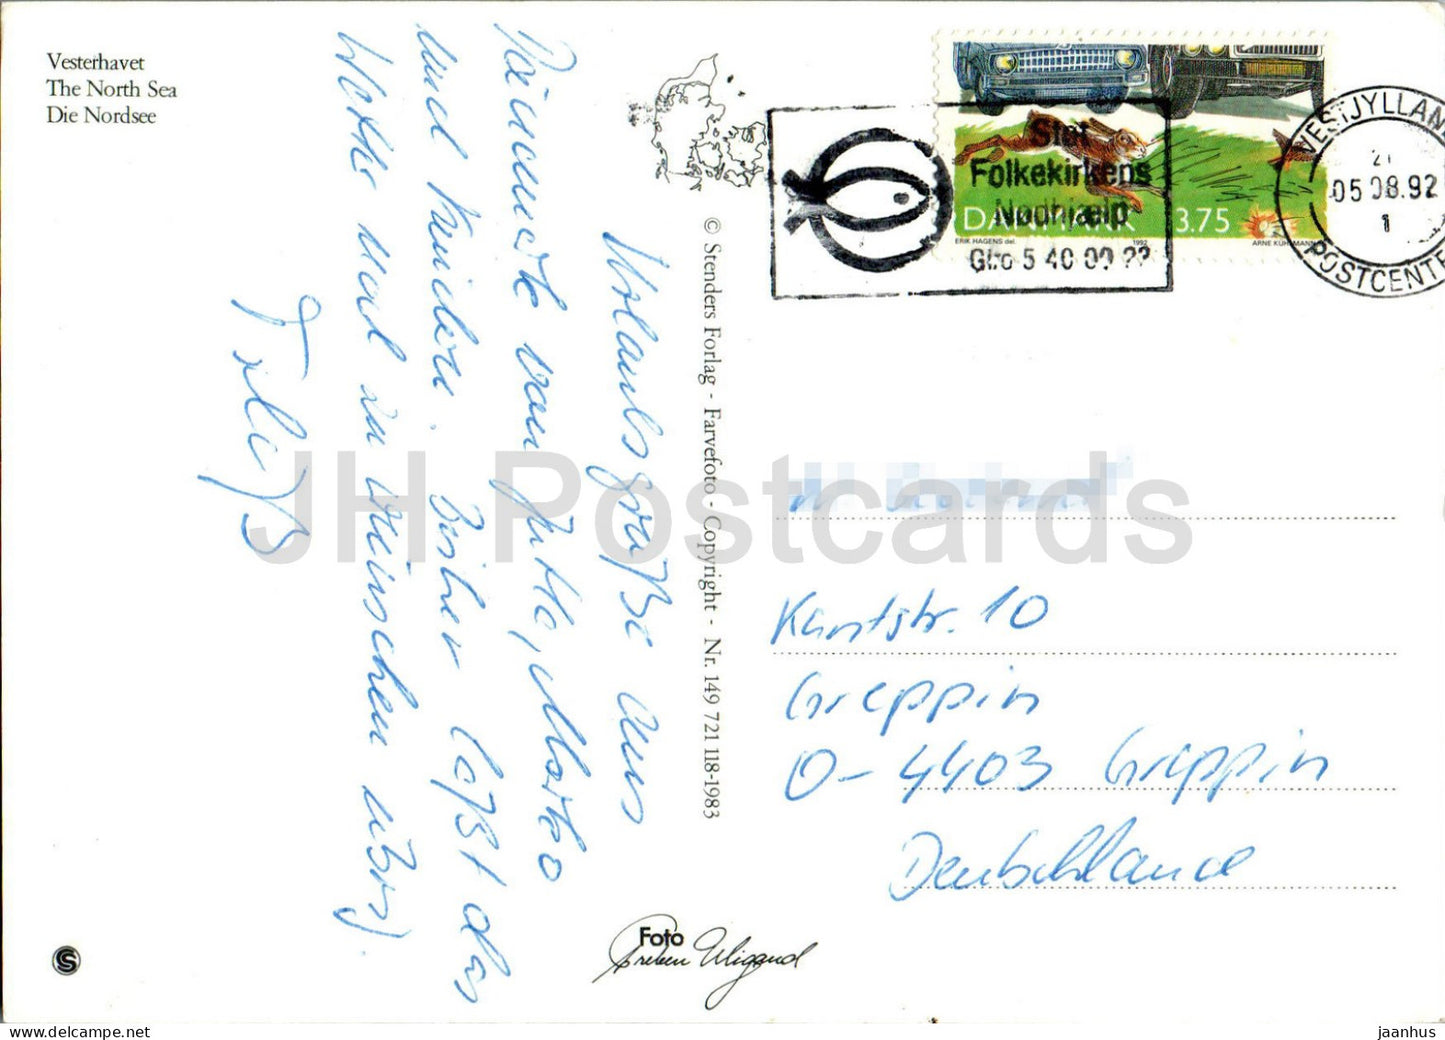 Vesterhavet
The North Sea
Die Nordsee
Urlaubsgrüße aus
Dänemark von Jutta,
und Kindern. Bisher läßt das
Wetter
zu wünschen übrig.
© Stenders Forlag - Farvefoto - Copyright - Nr. 149 721 118-1983
Støt
Folkekirkens
Nødhjælp
Giro 5 40 00 ??
DANMARK 3.75
ERIK HAGENS del. 1992 ARNE KÜHLMANN
VESTJYLLAND
21
05.08.92
1
POSTCENTER
Kantstr. 10
Greppin
O-4403 Greppin
Deutschland
Foto
Preben Wigand
S
JH Postcards
jaanhus